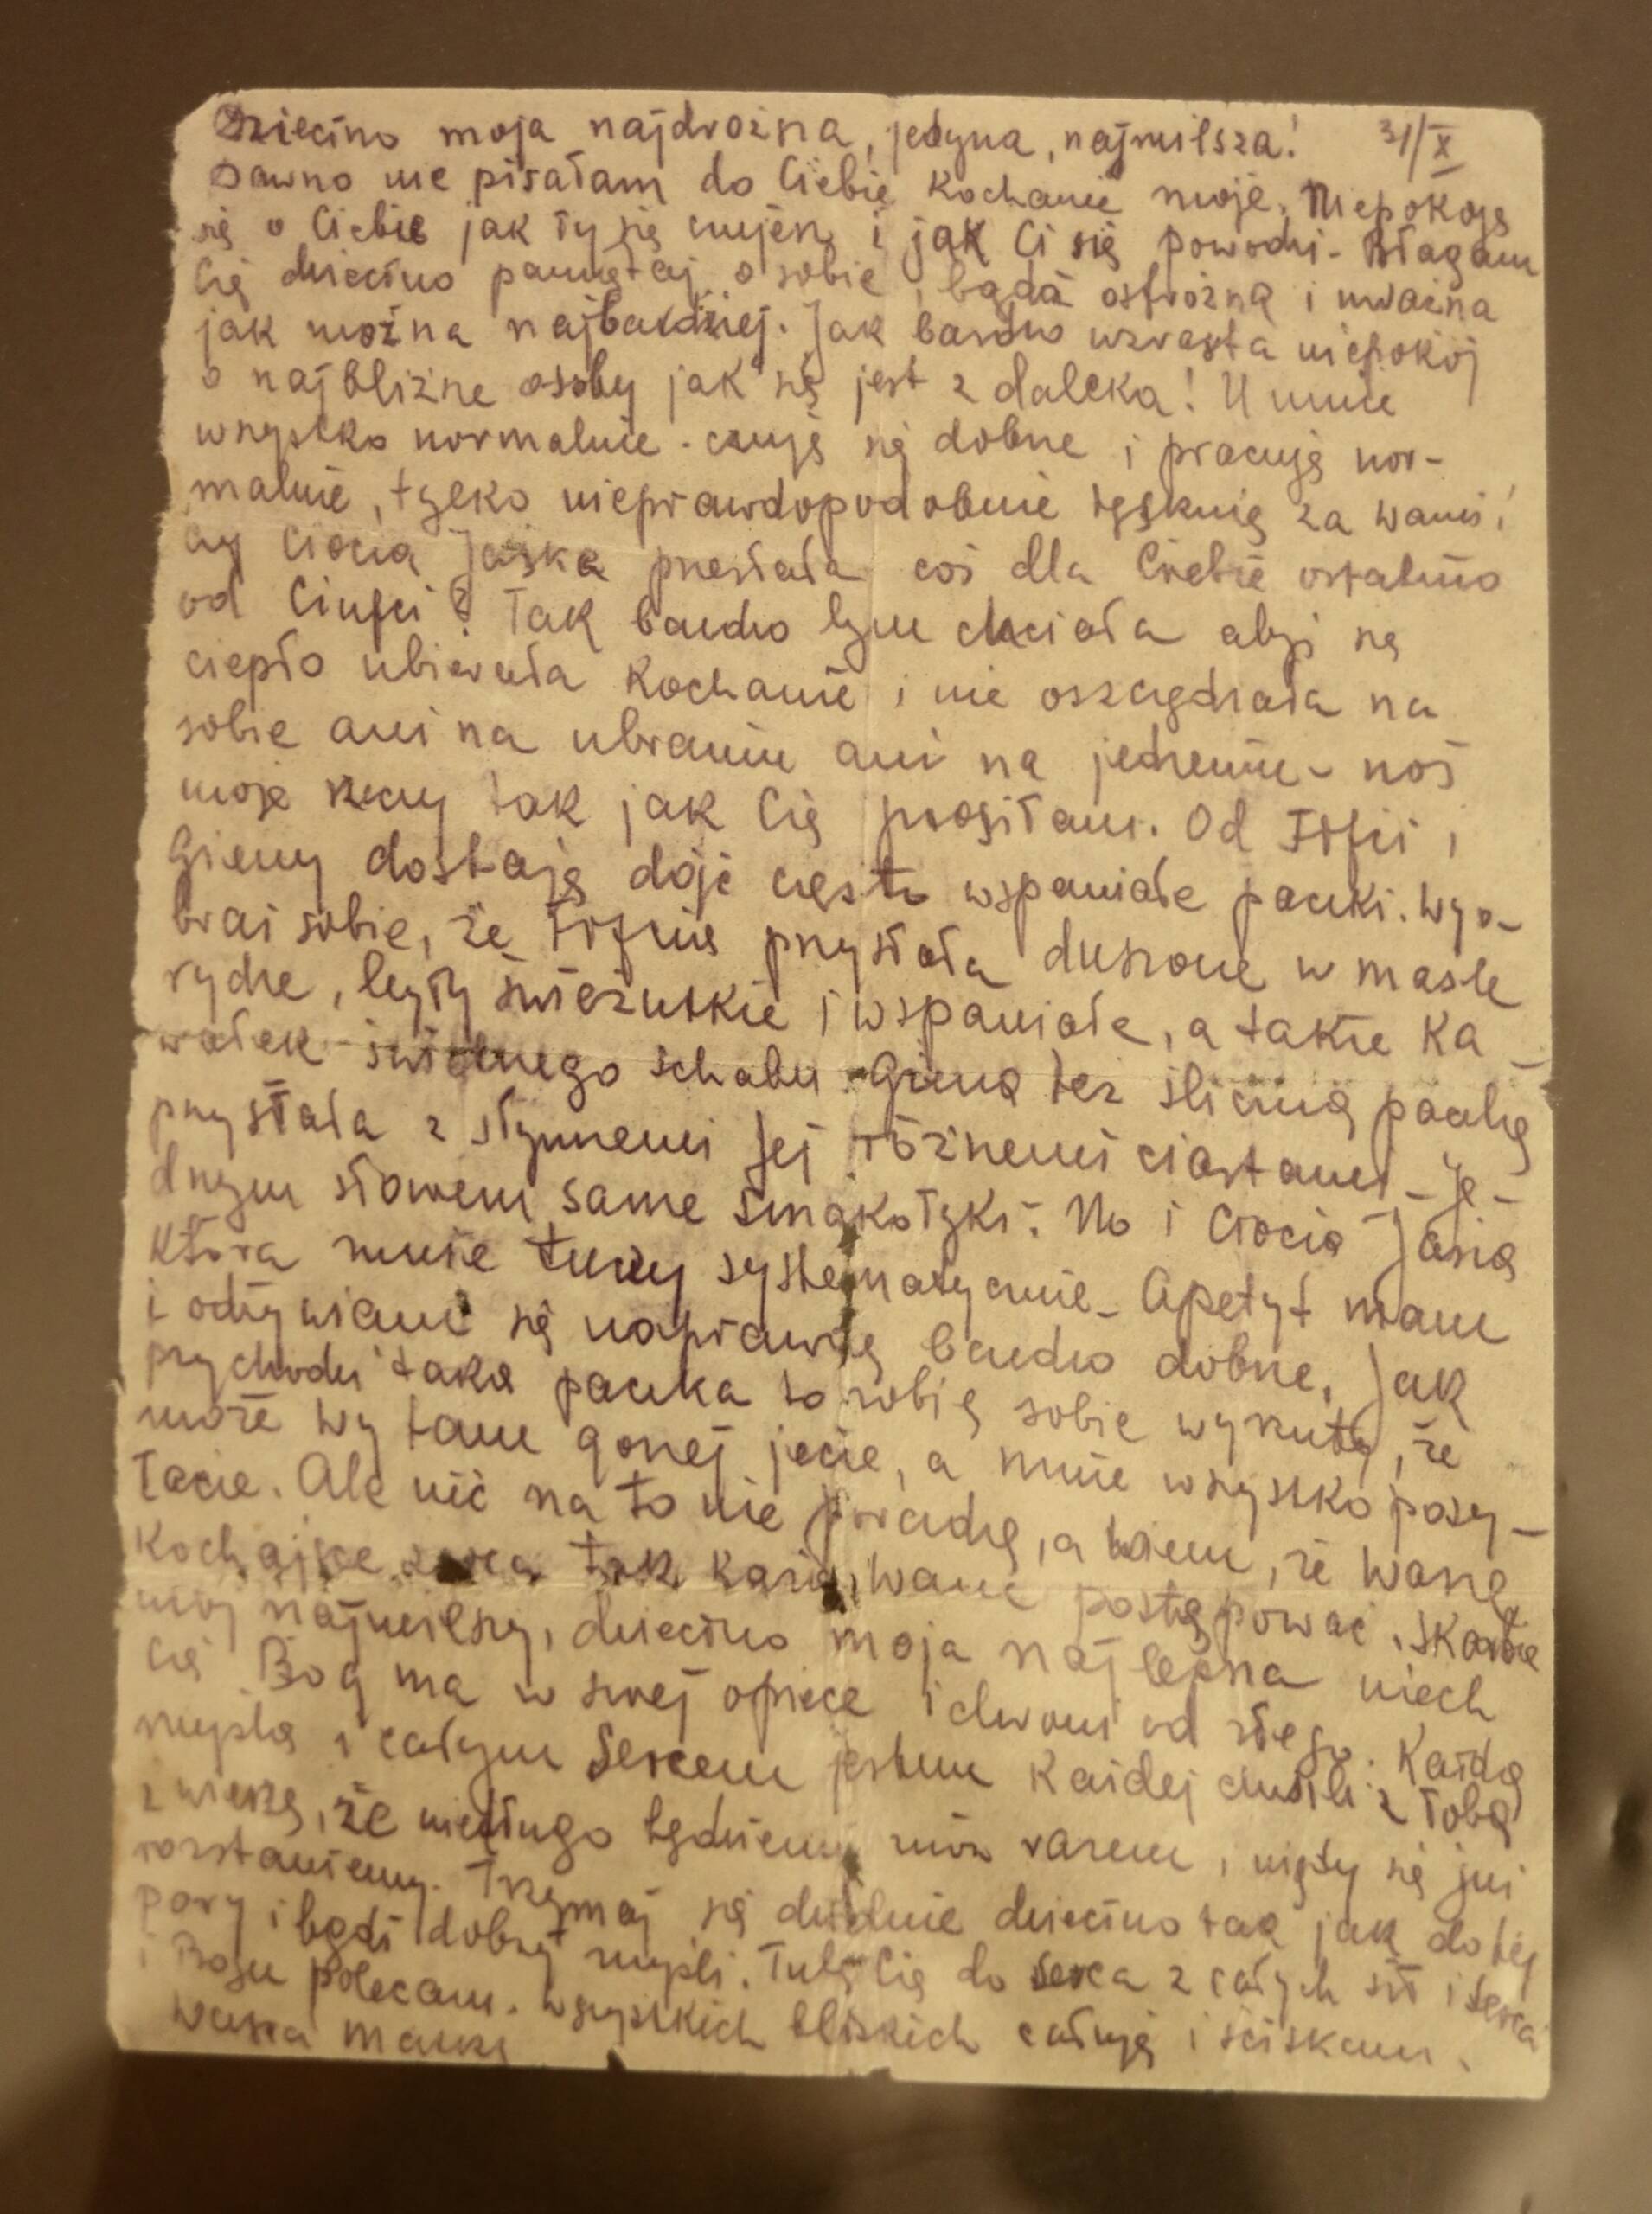 Dziecino moja najdroższa, jedyna, najmilsza! 31/X
Dawno nie pisałam do Ciebie Kochanie moje. Niepokoję
się o Ciebie jak Ty się czujesz i jak Ci się powodzi - Błagam
Cię dziecino pamiętaj o sobie, bądź ostrożna i uważna
jak można najbardziej. Jak bardzo wzrasta niepokój
o najbliższe osoby jak się jest z daleka! U mnie
wszystko normalnie - czuję się dobrze i pracuję nor-
malnie, tylko nieprawdopodobnie tęsknię za Wami!
Czy Ciocia Jaśka przesłała coś dla Ciebie ostatnio
od ? Tak bardzo bym chciała abyś się
ciepło ubierała Kochanie i nie oszczędzała na
sobie ani na ubraniu ani na jedzeniu - noś
moje rzeczy tak jak Cię prosiłam. Od i
Gieny dostaję dość często wspaniałe paczki. Wyo-
braź sobie, że przysłała duszone w maśle
rydze, były świeżutkie i wspaniałe, a także ka-
wałek świetnego schabu. Giena też śliczną paczkę
przysłała z słynnemi jej różnemi ciastami - je-
dnym słowem same smakołyki. No i Ciocia Jasia
która mnie tuczy systematycznie - Apetyt mam
i odżywiam się naprawdę bardzo dobrze. Jak
przychodzi taka paczka to robię sobie wyrzuty, że
może Wy tam gorzej jecie, a mnie wszystko posy-
łacie. Ale nic na to nie poradzę, a wiem, że Wasze
Kochające serca tak każą Wam postępować. Skarbie
mój najmilszy, dziecino moja najlepsza niech
Cię Bóg ma w swej opiece i chroni od złego. Każdą
myślą i całym Sercem jestem każdej chwili z Tobą
i wierzę, że niedługo będziemy znów razem i nigdy się już
rozstaniemy. Trzymaj się dzielnie dziecino tak jak do tej
pory i bądź dobrej myśli. Tulę Cię do serca z całych sił i serca
i Bogu polecam. Wszystkich bliskich całuję i ściskam.
Wasza